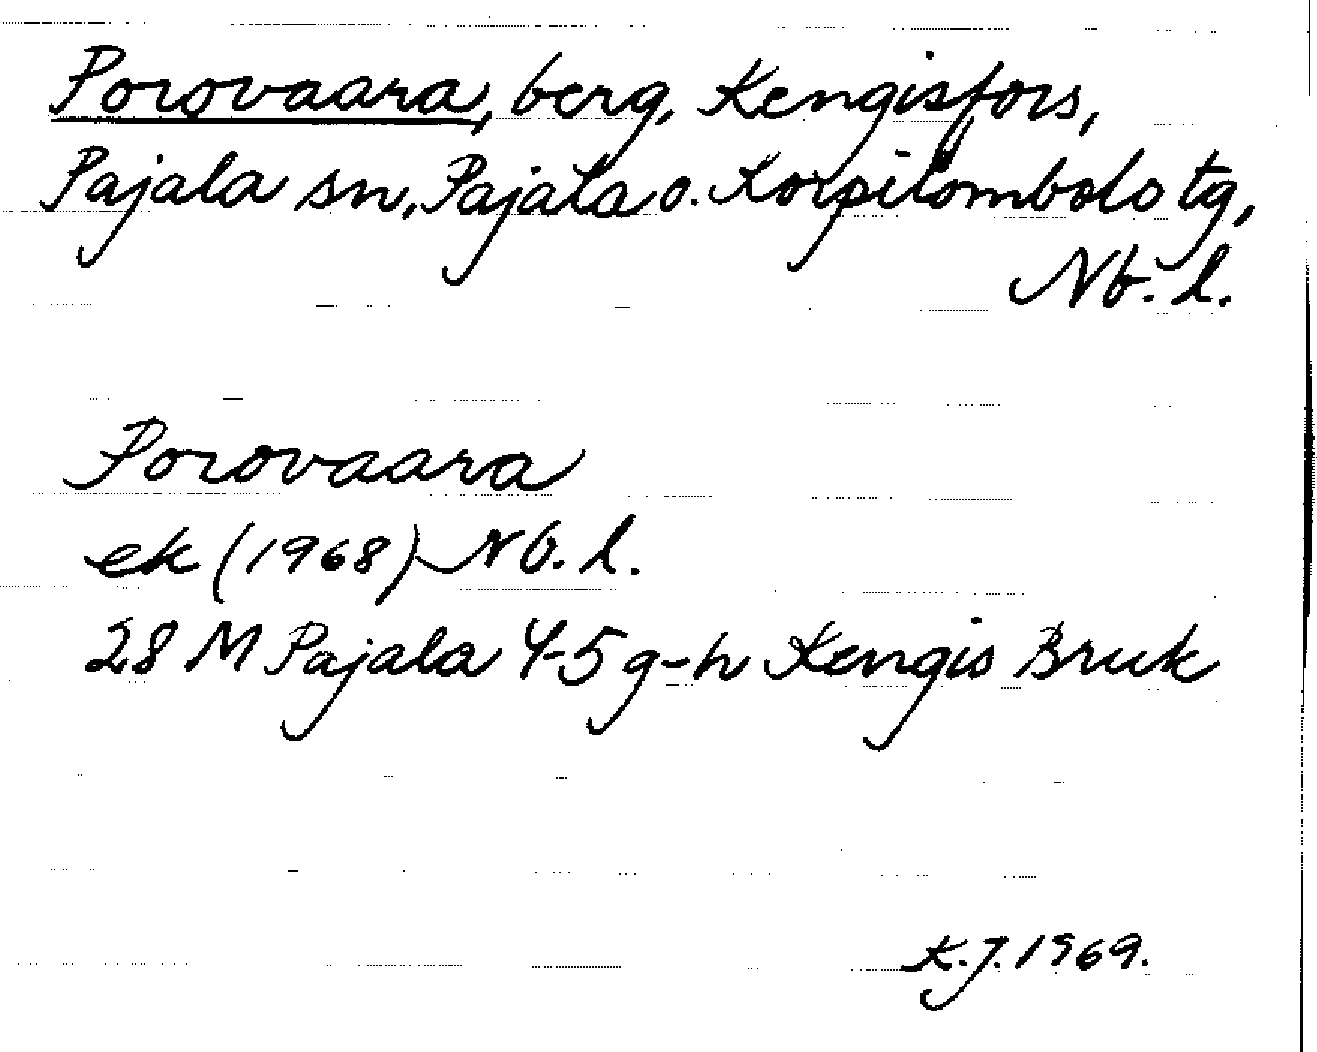 Porovaara, berg, Kengisfors,
Pajala sn, Pajala o. Korpilombolo tg,
Nb. l.
Porovaara
ek (1968) Nb. l.
28 M Pajala 4-5 g-h Kengis Bruk
K.J. 1969.